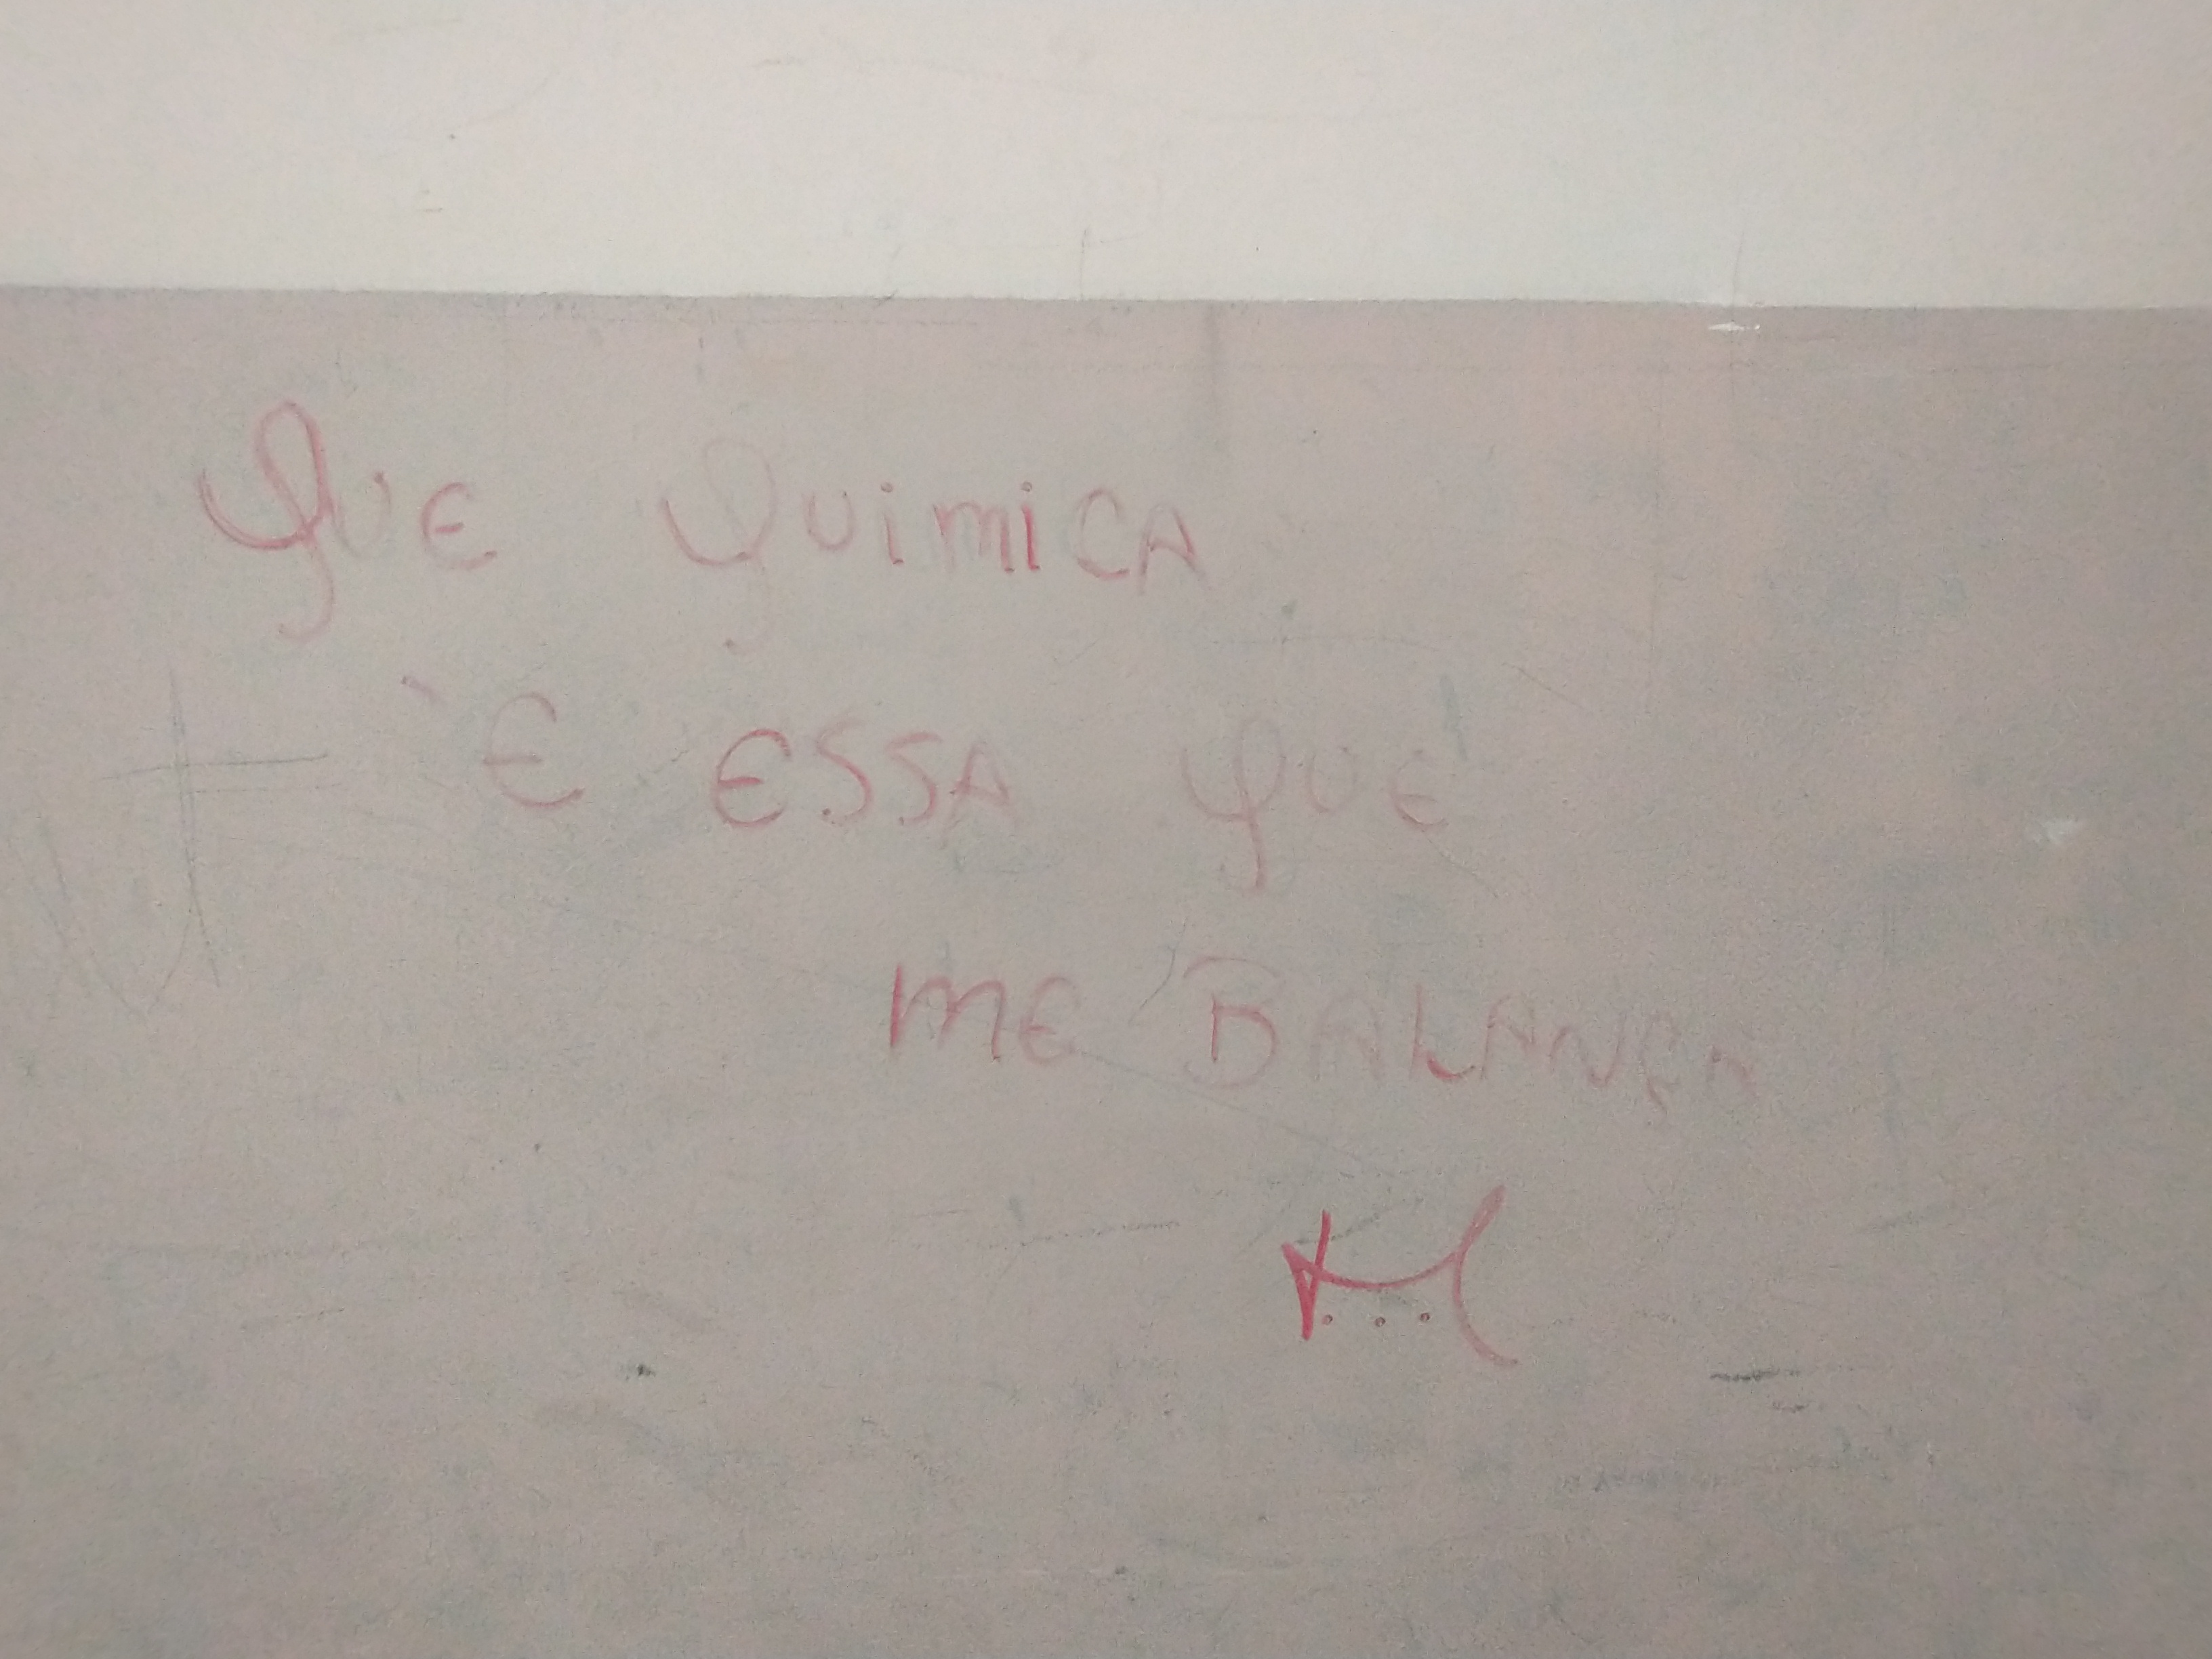 QUE QUIMICA
È ESSA QUE
ME BALANÇA